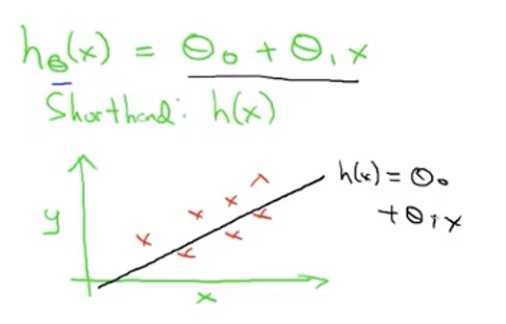 h_θ(x) = θ₀ + θ₁x
Shorthand: h(x)
h(x) = θ₀
+ θ₁x
y
x